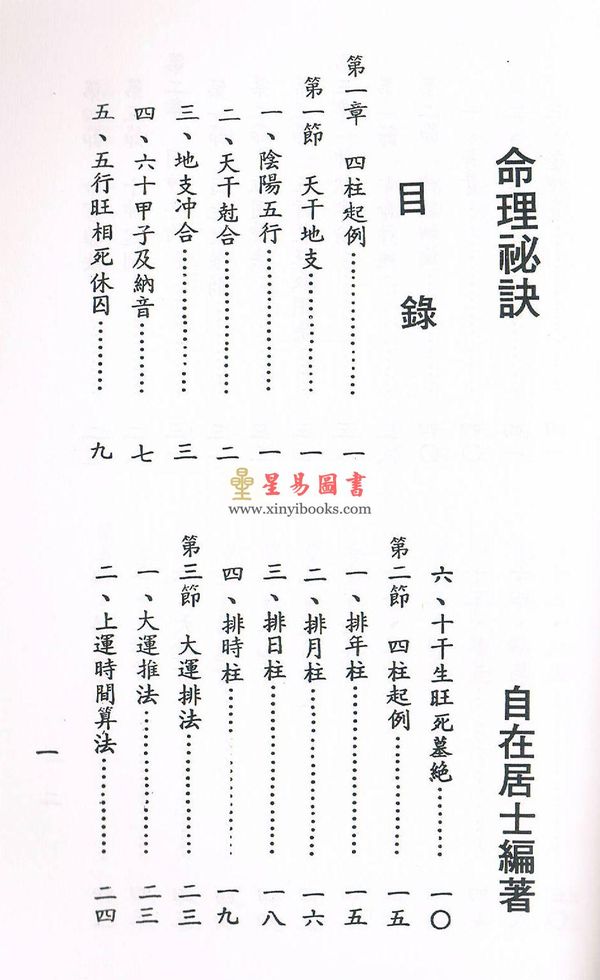 命理祕訣
自在居士編著
目錄
第一章 四柱起例…………………一
第一節 天干地支…………………一
一、陰陽五行…………………一
二、天干尅合…………………二
三、地支冲合…………………三
四、六十甲子及納音…………七
五、五行旺相死休囚…………九
六、十干生旺死墓絕…………一〇
第二節 四柱起例…………………一五
一、排年柱…………………一五
二、排月柱…………………一六
三、排日柱…………………一八
四、排時柱…………………一九
第三節 大運排法…………………二三
一、大運推法…………………二三
二、上運時間算法…………二四
一
星易圖書
www.xinyibooks.com